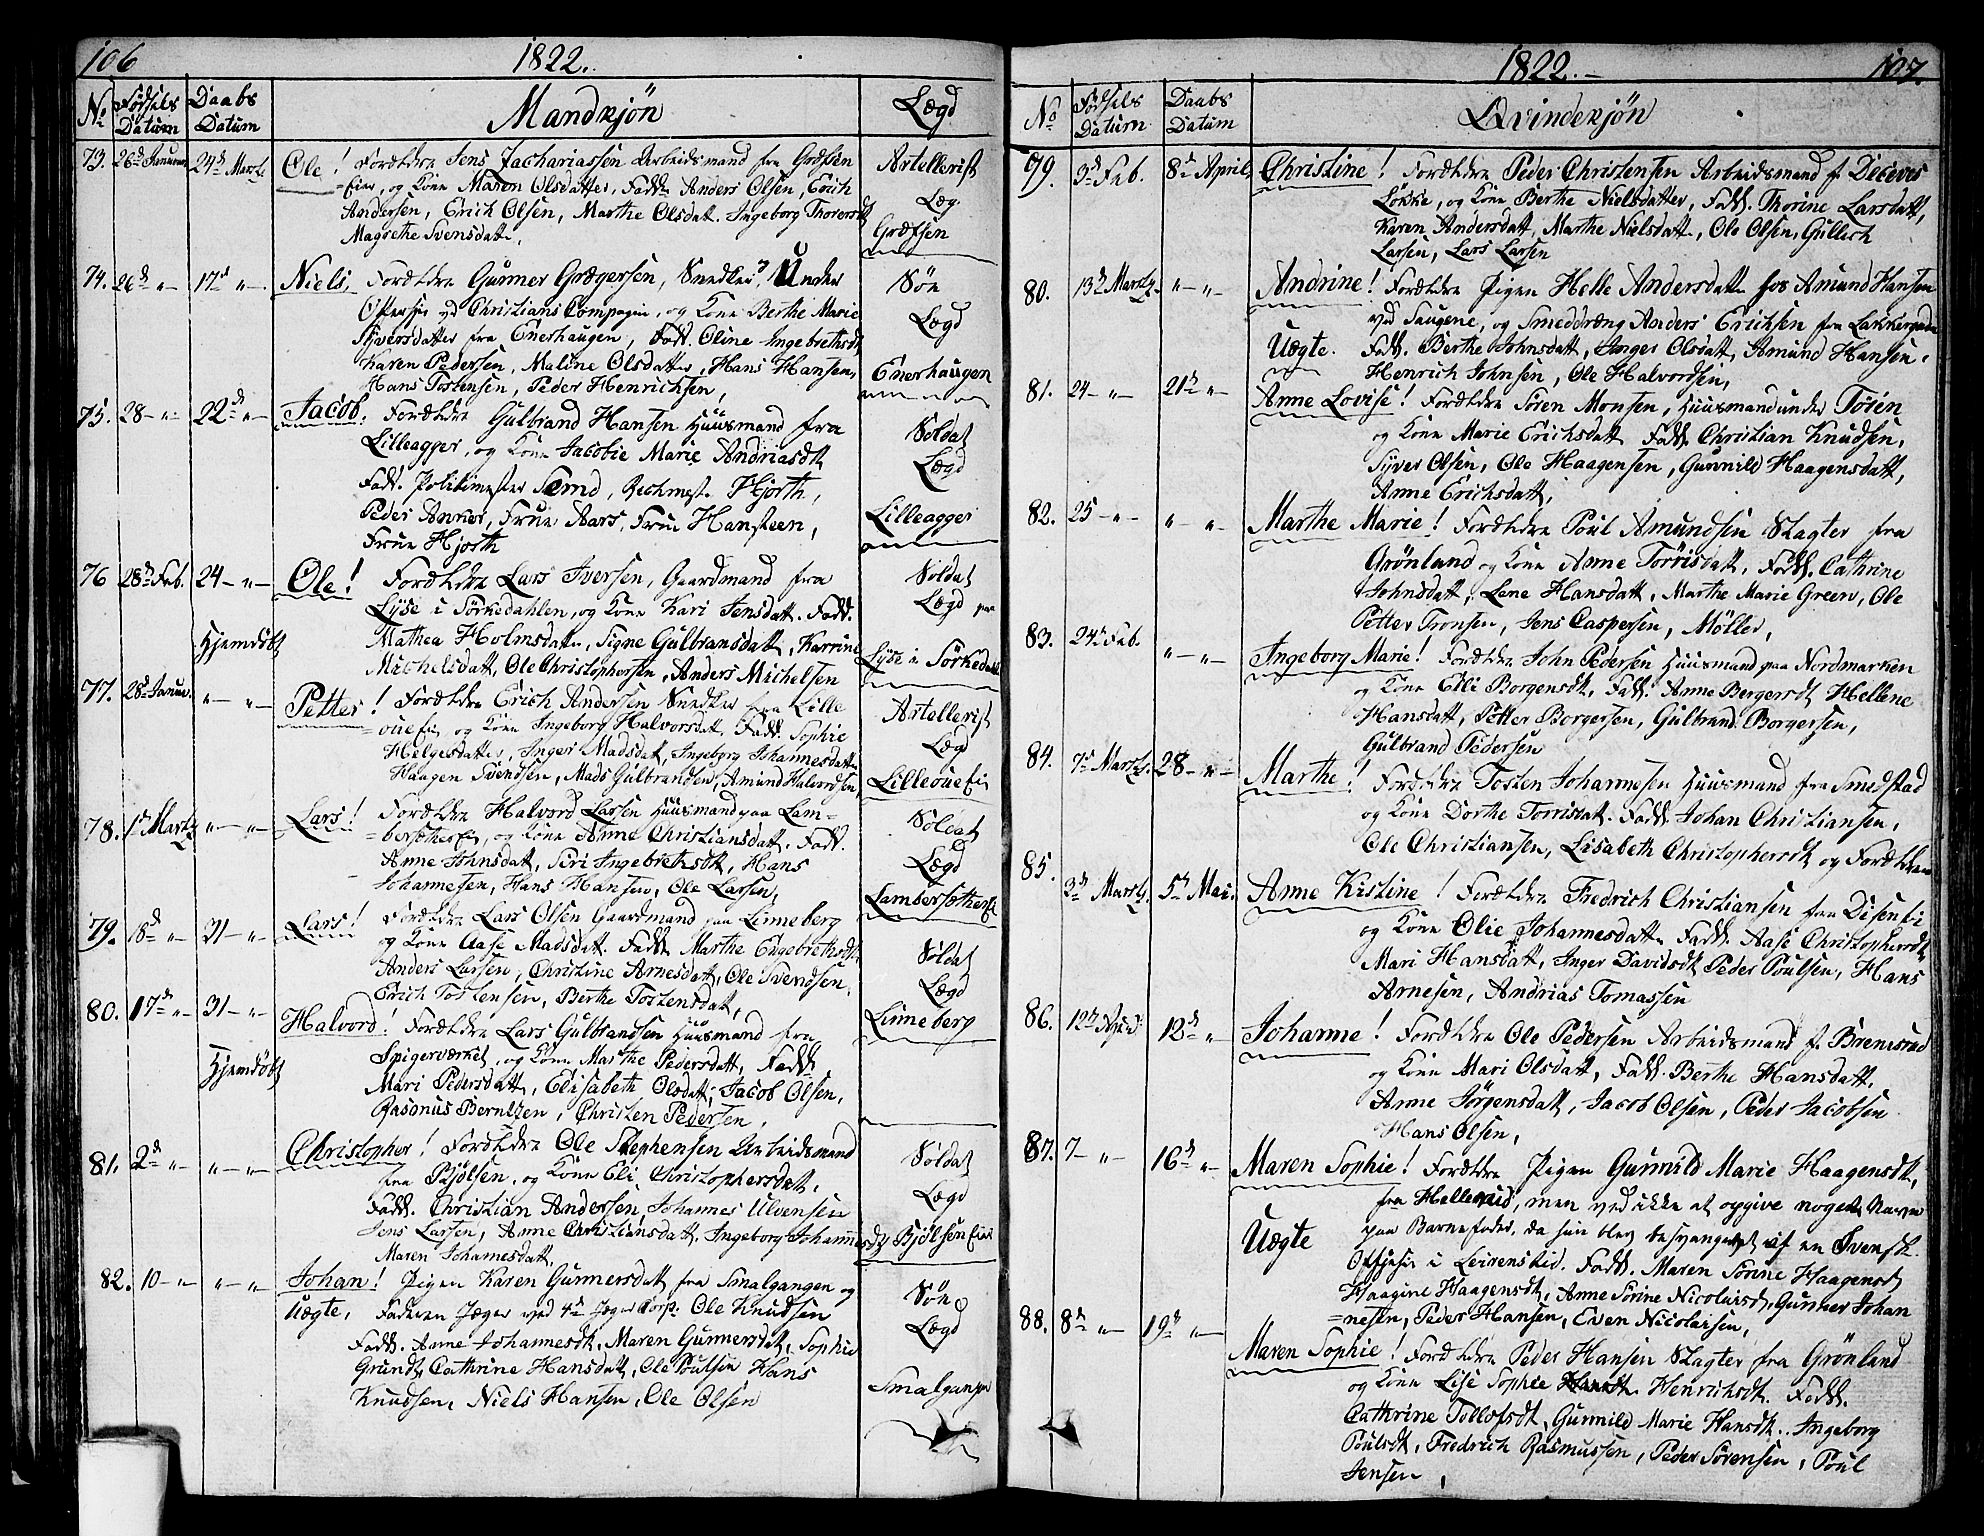 106
1822.
No Fødsels Datum Daabs Datum Mandkjön Lægd
73. 26d Januar 24d Martz Ole! Forældre Jens Zachariassen Arbeidsmand fra Græfsen
Eier, og Kone Maren Olsdatter, Fadd. Anders Olsen, Erich
Andersen, Erich Olsen, Marthe Olsdatt. Ingeborg Thoresdt
Magrethe Svensdatt.
Artellerist
Læg.
Græfsen
74. 26d -"- 17d -"- Niels, Forældre Gunner Grægersen, Snedker, Under
Officer ved Christians Compagni, og Kone Berthe Marie
Syversdatter fra Enerhaugen, Fadd. Oline Ingebrethsdt
Karen Pedersen, Maline Olsdatter, Hans Hansen,
Hans Tostensen, Peder Henrichsen,
Söe
Lægd
Enerhaugen
75. 28 -"- 22d -"- Jacob. Forældre Gulbrand Hansen Huusmand fra
Lilleagger, og Kone Jacobie Marie Andriasdt
Fadd. Politimester Hjorth,
Peder Anker, Frue Aars, Frue Hansteen,
Frue Hjorth
Soldat
Lægd
Lilleagger
76 28d Feb. 24 -"- Ole! Forældre Lars Iversen, Gaardmand fra
Lyse i Sörkedahlen, og Kone Kari Jensdatt. Fadd.
Hjemdöbt Mathea Holmsdatt, Signe Gulbransdatt, Karrine
Michelsdatt, Ole Christophersen, Anders Michelsen
Soldat
Lægd paa
Lyse i Sörkedahl
77. 28d Januar. "-" Petter! Forældre Erich Andersen Snedker fra Lille
oueEie, og Kone Ingeborg Halvorsdatt. Fadd. Sophie
Helgesdatter, Inger Madsdat, Ingeborg Johannesdatt
Haagen Svendsen, Mads Gulbrandsen, Amund Halvordsen,
Artellerist
Lægd
LilleoueEie
78. 1d Martz "-" Lars! Forældre Halvord Larsen Huusmand paa Lam=
=bersetherEie, og Kone Anne Christiansdatt. Fadd.
Anne Johnsdatt, Siri Ingebretsdt, Hans
Johannesen, Hans Hansen, Ole Larsen,
Soldat
Lægd
LambersætherEie
79. 18d -"- 31 -"- Lars! Forældre Lars Olsen Gaardmand paa Linneberg
og Kone Aase Madsdatt. Fadd. Marthe Engebrethsdt
Anders Larsen, Christine Arnesdatt, Ole Svendsen,
Erich Tostensen, Berthe Tostensdatt,
Soldat
Lægd
Linneberg
80. 17d -"- 31 -"- Halvord! Forældre Lars Gulbrandsen Huusmand fra
Hjemdöbt Spigerværket, og Kone Marthe Pedersdatt, Fadd.
Mari Pedersdatt, Elisabeth Olsdatt, Jacob Olsen,
Rasmus Berntzen, Christen Pedersen,
81. 2d -"- "-" Christopher! Forældre Ole Stephensen Arbeidsmand
fra Bjölsen, og Kone Eli Christophersdatt.
Fadd. Christian Andersen, Johannes Ulvensen
Jens Larsen, Anne Christiansdatt, Ingeborg Johannesdt
Maren Johanesdatt.
Soldat
Lægd
BjölsenEier
82. 10 -"- "-" Johan! Pigen Karen Gunnersdatt fra Smalgangen og
Uægte, Faderen Jæger ved 4d Jæger Corp. Ole Knudsen
Fadd. Anne Johannesdt, Maren Gunnersdat, Sophie
Grundt, Cathrine Hansdatt, Ole Poulsen Hans
Knudsen, Niels Hansen, Ole Olsen
Söe
Lægd
Smalgangen
1822.
107.
No Fødsels Datum Daabs Datum Qvindekjön
79. 3d Feb. 8d April Christine! Forældre Peder Christensen Arbeidsmand f
Løkke, og Kone Berthe Nielsdatter, Fadd. Thorine Larsdatt,
Karen Andersdatt, Marthe Nielsdatt, Ole Olsen, Gullich
Larsen, Lars Larsen
80. 13d Martz. "-" Andrine! Forældre Pigen Helle Andersdatt hos Amund Hansen
ved Saugene, og Smeddræng Anders Erichsen fra Lakkergaden
Uægte. Fadd. Berthe Johnsdatt, Inger Olsdatt, Amund Hansen,
Henrich Johnsen, Ole Halvordsen,
81. 24 -"- 21d -"- Anne Lovise! Forældre Sören Monsen, Huusmand under Töien
og Kone Marie Erichsdatt Fadd. Christian Knudsen,
Syver Olsen, Ole Haagensen, Gunnild Haagensdatt,
Anne Erichsdatt,
82. 25 -"- "-" Marthe Marie! Forældre Poul Amundsen Slagter fra
Grönland og Kone Anne Torrisdatt. Fadd. Cathrine
Johnsdatt, Lene Hansdatt, Marthe Marie Green, Ole
Petter Tronsen, Jens Caspersen, Møller,
83. 24d Feb. "-" Ingeborg Marie! Forældre John Pedersen Huusmand paa Nordmarken
og Kone Elli Borgensdt, Fadd. Anne Bergersdt Hellene
Hansdatt, Petter Borgersen, Gulbrand Borgersen,
Gulbrand Pedersen
84. 7d Martz. 28 -"- Marthe! Forældre Tosten Johannesen Huusmand fra Smedstad
og Kone Dorthe Torrisdat. Fadd. Johan Christiansen,
Ole Christiansen, Lisabeth Christophersdt og Forældrene
85. 3d Martz. 5d Mai. Anne Kistine! Forældre Fredrich Christiansen fra Disen Ei
og Kone Olie Johannesdatt. Fadd. Aase Christophersdt,
Mari Hansdatt, Inger Davidsdt Peder Poulsen, Hans
Arnesen, Andrias Tomassen
86. 12d April 12d " Johanne! Forældre Ole Pedersen Arbeidsmand f. Brenerud
og Kone Mari Olsdatt, Fadd. Berthe Hansdatt.
Anne Jörgensdatt, Jacob Olsen, Peder Jacobsen
Hans Olsen,
87. 7 -"- 16d -"- Maren Sophie! Forældre Pigen Gunnild Marie Haagensdt,
fra Hellerud, men ved ikke at opgive noget Navn
Uægte paa Barnefader, da hun blev besvangret af en Svensk
Officier i Leirenskid. Fadd. Maren Sörine Haagensdt
Haagine Haagensdt, Anne Sörine Nicolaisdt, Gunner Johan
=nesen, Peder Hansen, Even Nicolaisen,
88. 8d -"- 19d -"- Maren Sophie! Forældre Peder Hansen Slagter fra Grönland
og Kone Lise Sophie Henrichsdt. Fadd.
Cathrine Tollofsdt, Gunnild Marie Hansdt. Ingeborg
Poulsdt, Fredrich Rasmussen, Peder Sörensen, Poul
Jensen,